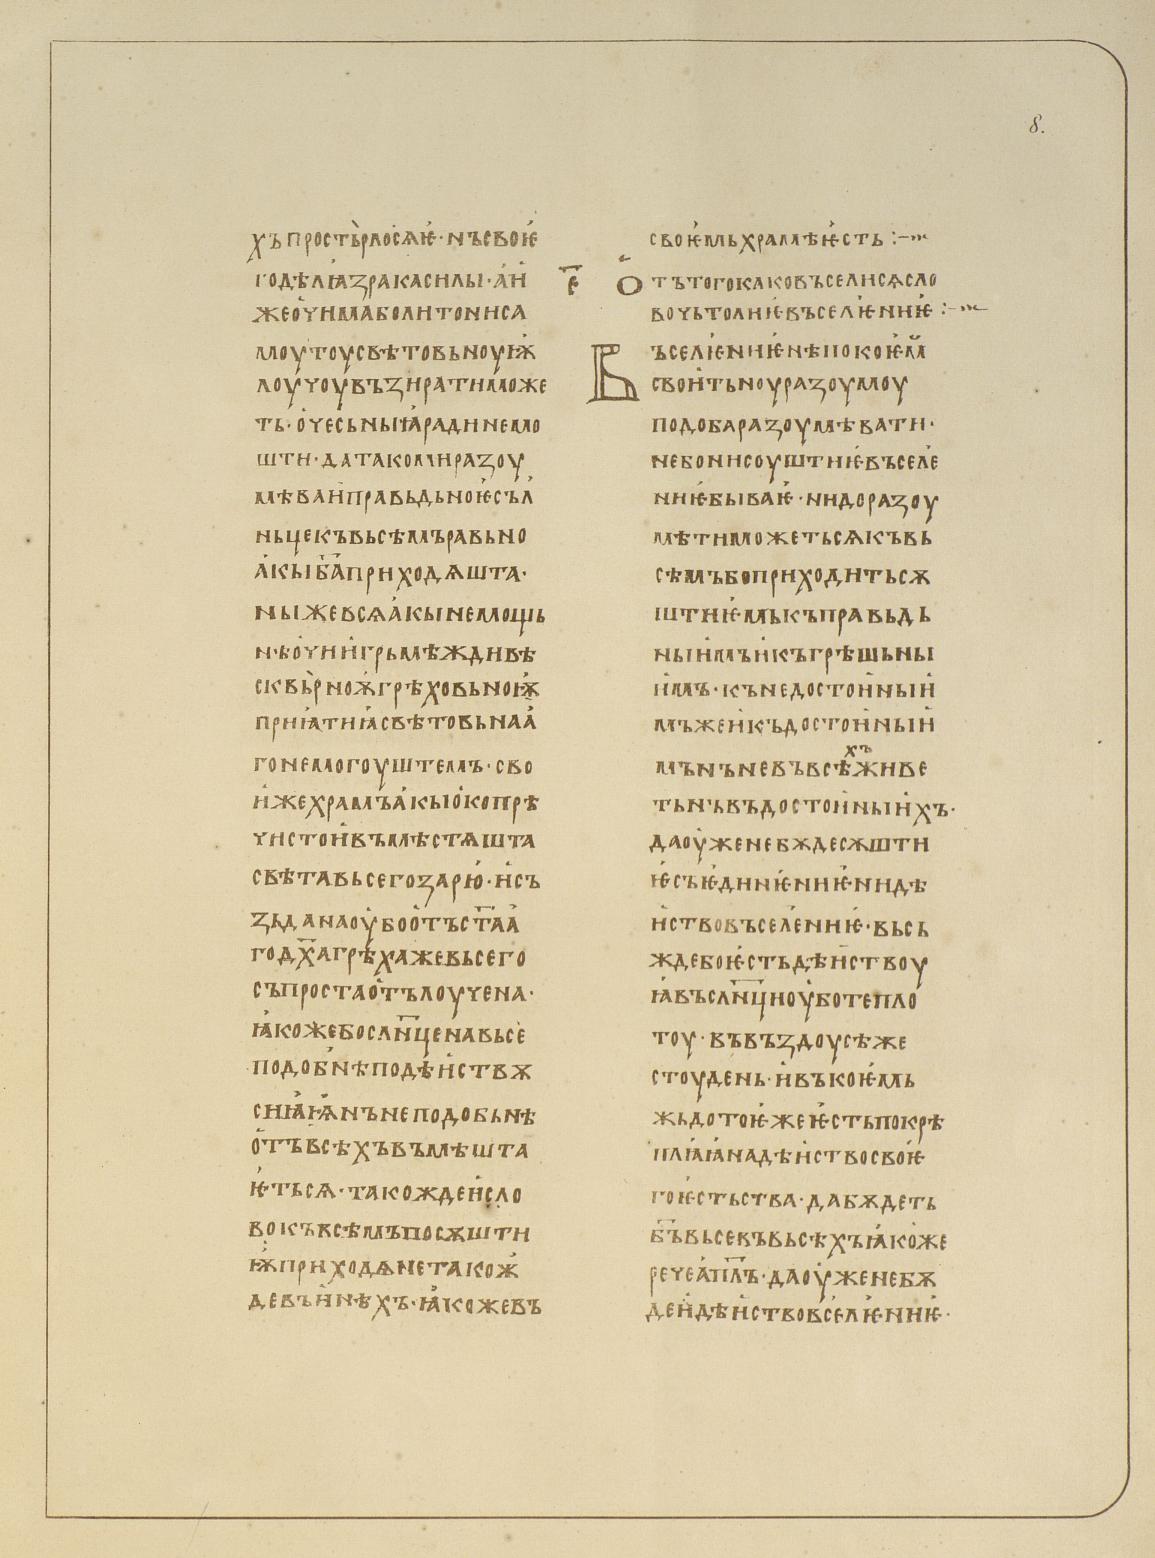 8.
хъпростьрлосѧѥ·нъсвоѥ
годѣлꙗзракасилы·аи
жеоунимаболитониса
моутоусвѣтовьноуѭ
лоучоувъзиратиможе
ть·очесьныꙗрадинемо
шти·датакомиразоу
мѣваиправьдьноѥсъл
ньцекъвьсѣмъравьно
акыб҃априходѧшта·
ныжевсѧакынемощь
н·ѣоунииГрьмѣждивѣ
сквьрноѫгрѣховьноѭ
приꙗтиꙗсвѣтовьнаа
гонемогоуштемъ·сво
ижехрамъакыокопрѣ
чистоивъмѣстѧшта
свѣтавьсегозарю·исъ
зьданаоубоотъст҃аа
годх҃агрѣхажевьсего
съпростаотълоучена·
ꙗкожебослн҃ценавьсе
подобнѣподѣиствѫ
сиꙗѩнънеподобьнѣ
отъвсѣхъвъмѣшта
ѥтьсѧ·такождеисло
вокъвсѣмъпосѫшти
ѭприходѧнетакоѫ
девъинѣхъ·ꙗкожевъ
своѥмьхрамѣѥсть:~
е҃ отътогокаковъселисѧсло
вочьтолиѥвъселѥниѥ:~
Въселѥниѥнѣпокоѥм
своитьноуразоумоу
подобаразоумѣвати·
небонисоуштиѥвъселе
ниѥбываѥ·нидоразоу
мѣтиможетьсѧкъвь
сѣмъбоприходитьсѫ
штиѥмькъправьдь
ныимъикъгрѣшьны
имъ·кънедостоиныи
мъжеикъдостоиныи
мънъневъвсѣхъживе
тьнъвъдостоиныихъ·
даоуженебѫдесѫшти
ѥсъѥдинѥниѥнидѣ
иствовъселениѥ·вьсь
ждебоѥстьдѣиствоу
ꙗвъслн҃циоуботепло
тоу·въвъздоусѣже
стоудень·ивъкоѥмь
жьдотоѥжеѥстьпокрѣ
плꙗꙗнадѣиствосвоѥ
гоѥстьства·дабѫдеть
б҃ъвьсевъвьсѣхъꙗкоже
речеап҃лъ·даоуженебѫ
деидѣиствовселѥниѥ·